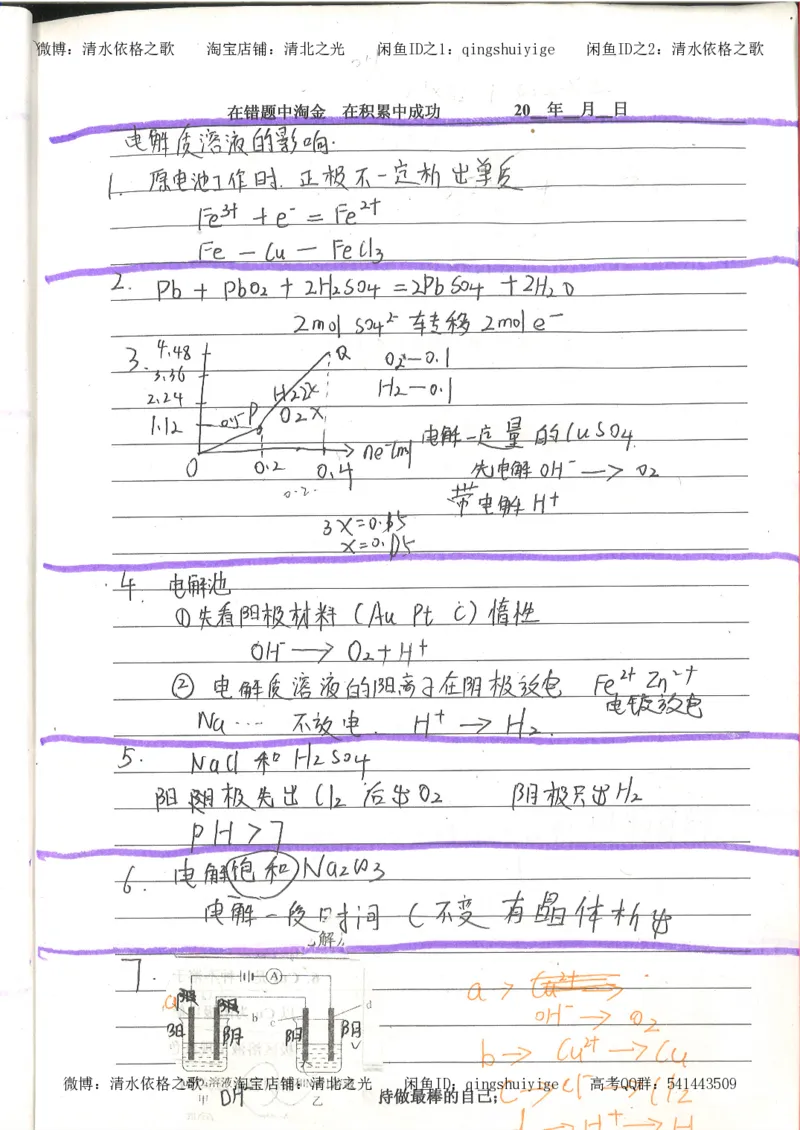 微博：清水依格之歌 淘宝店铺：清北之光 闲鱼ID之1：qingshuiyige 闲鱼ID之2：清水依格之歌
在错题中淘金 在积累中成功 20__年__月__日
电解质溶液的影响.
1. 原电池工作时. 正极不一定析出单质
Fe³⁺ + e⁻ = Fe²⁺
Fe — Cu — FeCl₃
2. Pb + PbO₂ + 2H₂SO₄ = 2PbSO₄ + 2H₂O
2mol SO₄²⁻ 转移 2mol e⁻
3. 4.48 Q O₂—0.1
3.36 H₂—0.1
2.24 H₂2X
1.12 0.5 P O₂ X 电解一定量的CuSO₄
ne⁻(m
0 0.2 0.4 先电解 OH⁻ —> O₂
0.2. 电解 H⁺
3X=0.15
X=0.05
4. 电解池
①先看阳极材料 (Au Pt C) 惰性
OH⁻ —> O₂+H⁺
② 电解质溶液的阳离子在阴极放电 Fe²⁺ Zn²⁺
电镀放电
Na ···· 不放电. H⁺ —> H₂.
5. NaCl 和 H₂SO₄
阳极先出 Cl₂ 后出O₂ 阴极只出H₂
PH>7
6. 电解饱和Na₂CO₃
电解一段时间 C不变 有晶体析出
解
7.
A
a b c d
阳 阴 阳 阴
a > Cu²⁺ ->
OH⁻ -> O₂
b -> Cu²⁺ -> Cu
c -> Cl⁻ -> Cl₂
d -> H⁺ -> H
溶液
甲 乙
OH
微博：清水依格之歌 淘宝店铺：清北之光 闲鱼ID：qingshuiyige 高考QQ群：541443509
持做最棒的自己;